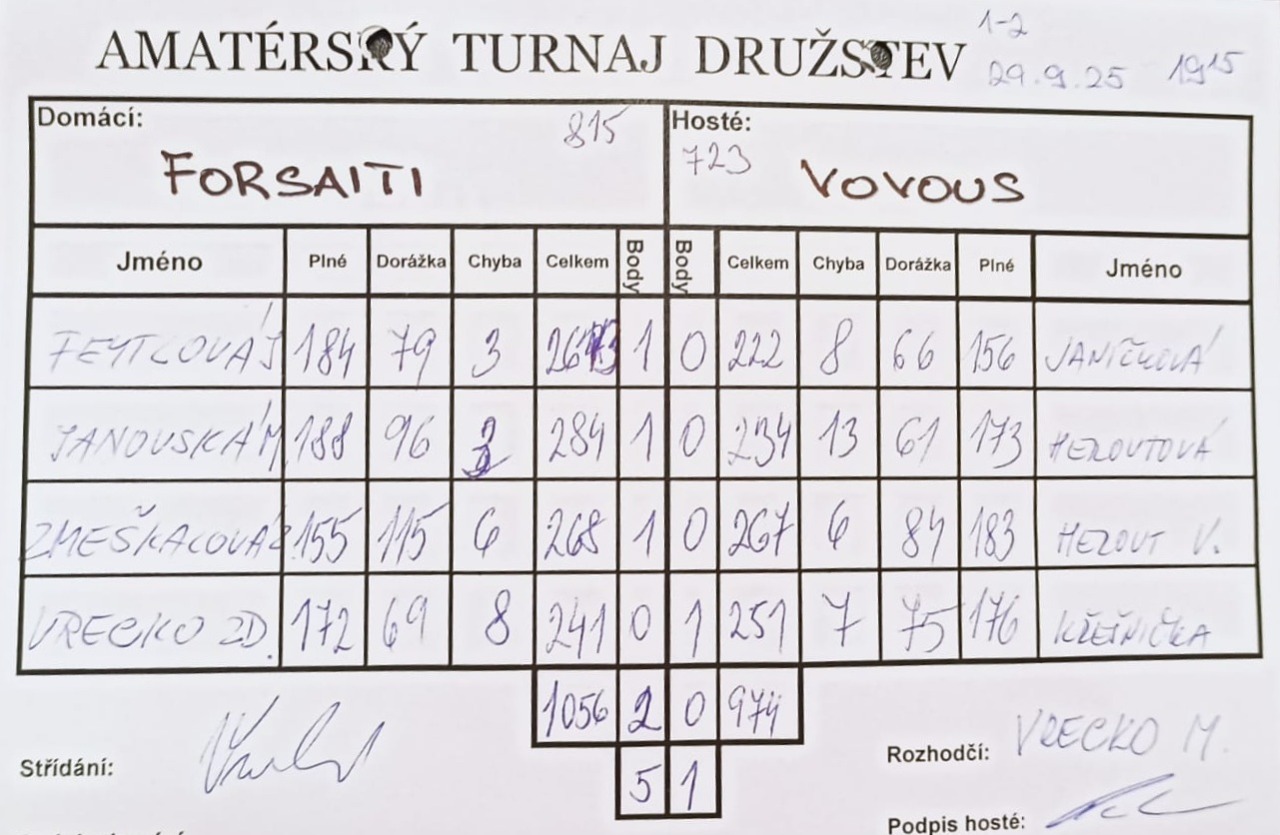 1-2
AMATÉRSKÝ TURNAJ DRUŽSTEV
29.9.25 19¹⁵
Domácí: 815 Hosté:
723
FORSAITI VOVOUS
Jméno Plné Dorážka Chyba Celkem Body Body Celkem Chyba Dorážka Plné Jméno
FEYTLOVÁ J 184 79 3 263 1 0 222 8 66 156 JANÍČKOVÁ
JANOUSKÁ M. 188 96 3 284 1 0 234 13 61 173 HEZOUTOVÁ
ZMEŠKALOVÁ Z. 155 115 6 268 1 0 267 6 84 183 HEZOUT V.
VRECKO ZD. 172 69 8 241 0 1 251 7 75 176 KŘEŠNIČKA
1056 2 0 974
5 1
Střídání: Rozhodčí: VRECKO M.
Podpis hosté: